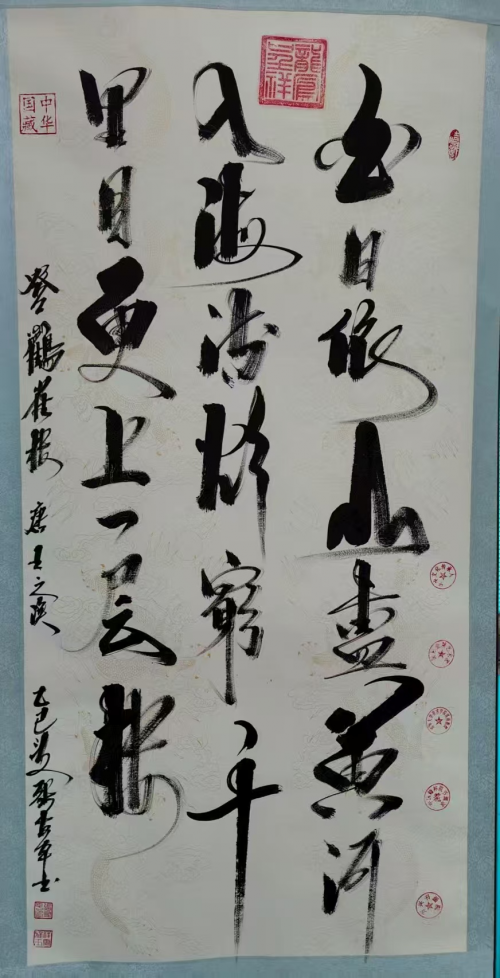 龍鳳呈祥
白日依山盡黄河
入海流欲窮千
里目更上一层楼
登鸛雀楼 唐王之涣
乙巳夏
中华国藏